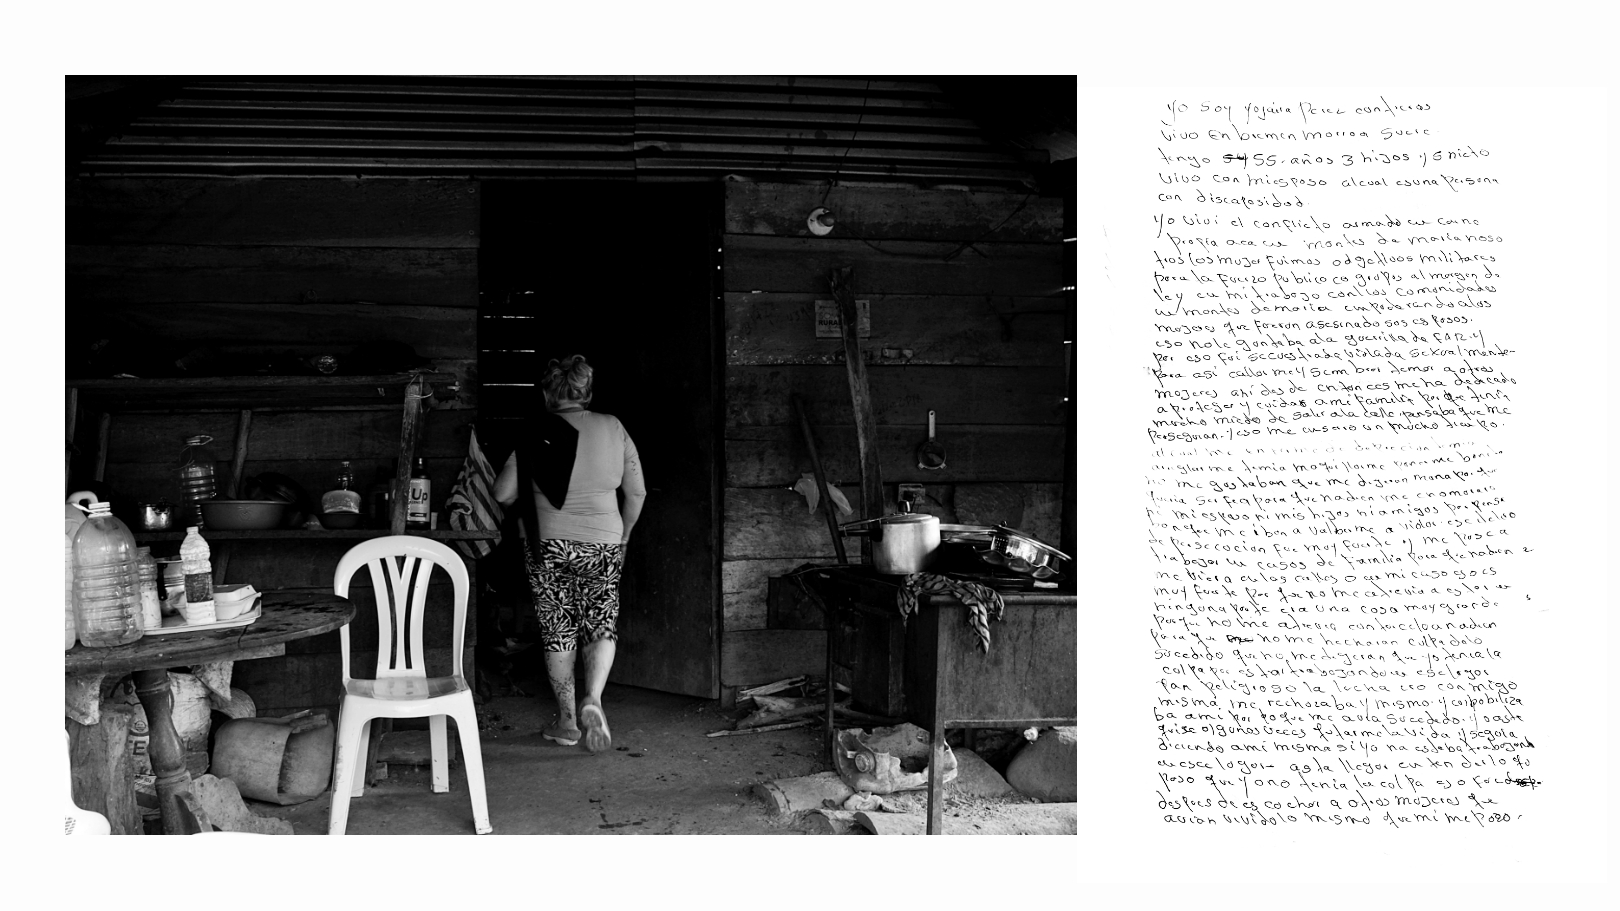 Up
RURA
yo soy yojaira Perez contreras
vivo En bremen morroa Sucre
tengo 55 años 3 hijos y 5 nieto
vivo con miesposo alcual esuna persona
con discapasidad.
yo vivi el conflicto armado en carne
propia aca en montes de maria noso
tros las mujer fuimos odgetivos militares
para la fuerza publica grupos al margen de
ley en mi trabajo con las comonidades
en montes demaria empoderando alas
mujeres que fueron asesinado sos esposos.
eso nole gustaba ala guerrilla de FAR. y
por eso fui secuestrada violada sexualmente
para asi callarme y sembrar temor a otras
mujeres ahi desde entonces me ha dedicado
a proteger y cuidar ami familia porque tenia
mucho miedo de salir ala calle pensaba que me
perseguian. y eso me
me en
arreglarme temia maquillarme
me gostaban que me dijeran mona
ser fea para que nadien me enamorara
mi esposo ni mis hijos ni amigos
que me iban a volver a violar
de persecucion fue muy fuerte y me puse a
trabajar en casas de familia para que nadien
me viera en las calles o en mi casa eso es
muy fuerte por que no me atrevia a estar en
ninguna parte era una cosa muy grande
porque no me atrevia contarcelo anadien
para que no me hecharan culpa delo
sucedido que no me dijeran que yo tenia la
culpa por estar trabajando en ese lugar
tan peligroso la lucha era conmigo
misma, me rechazaba y mismo y colpabiliza
ba ami por lo que me avia sucedido. y asta
quise algunas veces quitarme la vida y segia
diciendo ami misma si yo no estaba trabajando
en ese logar asta llegar entender lo que
paso que yo no tenia la colpa eso fue
despues de escochar a otras mujeres que
avian vivido lo mismo que mi me paso.